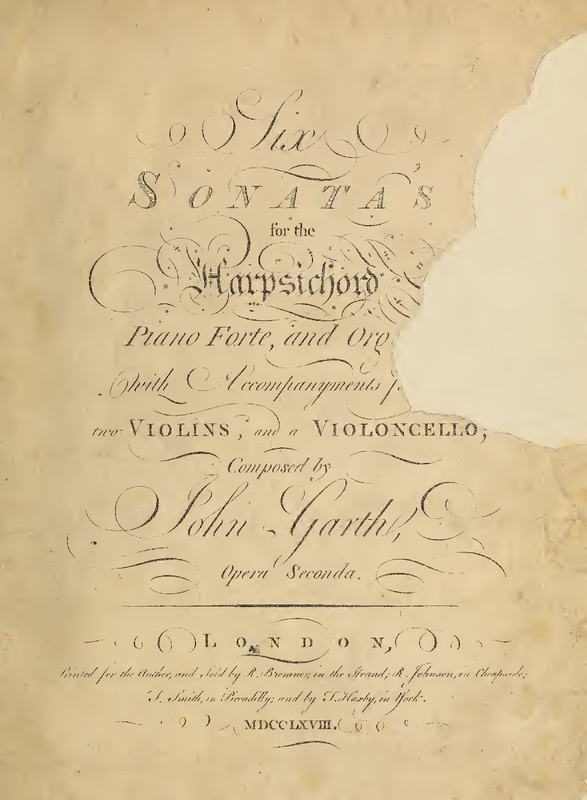 Six
SONATA'S
for the
Harpsichord
Piano Forte, and Org
with Accompanyments f
two VIOLINS, and a VIOLONCELLO,
Composed by
John Garth,
Opera Seconda.
LONDON,
Printed for the Author, and Sold by R. Bremner, in the Strand; R. Johnson, in Cheapside;
T. Smith, in Piccadilly; and by T. Haxby, in York.
MDCCLXVIII.